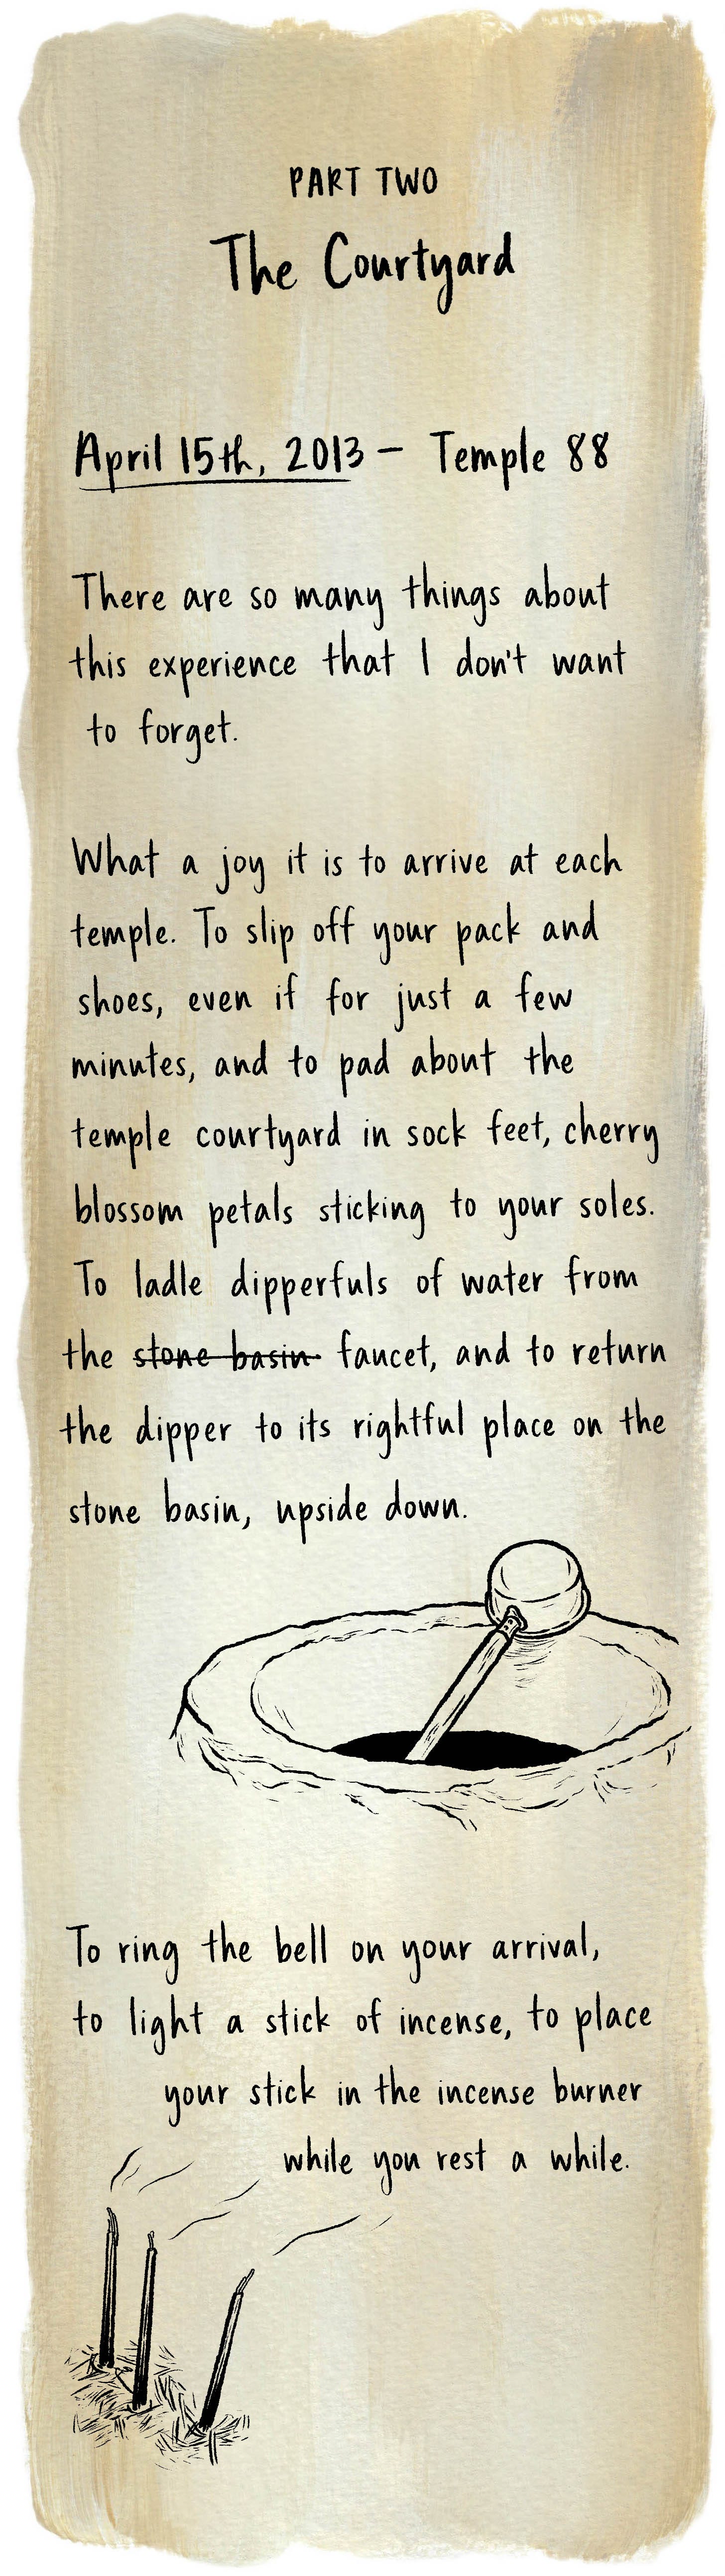 PART TWO
The Courtyard
April 15th, 2013 - Temple 88
There are so many things about
this experience that I don't want
to forget.
What a joy it is to arrive at each
temple. To slip off your pack and
shoes, even if for just a few
minutes, and to pad about the
temple courtyard in sock feet, cherry
blossom petals sticking to your soles.
To ladle dipperfuls of water from
the stone basin faucet, and to return
the dipper to its rightful place on the
stone basin, upside down.
To ring the bell on your arrival,
to light a stick of incense, to place
your stick in the incense burner
while you rest a while.